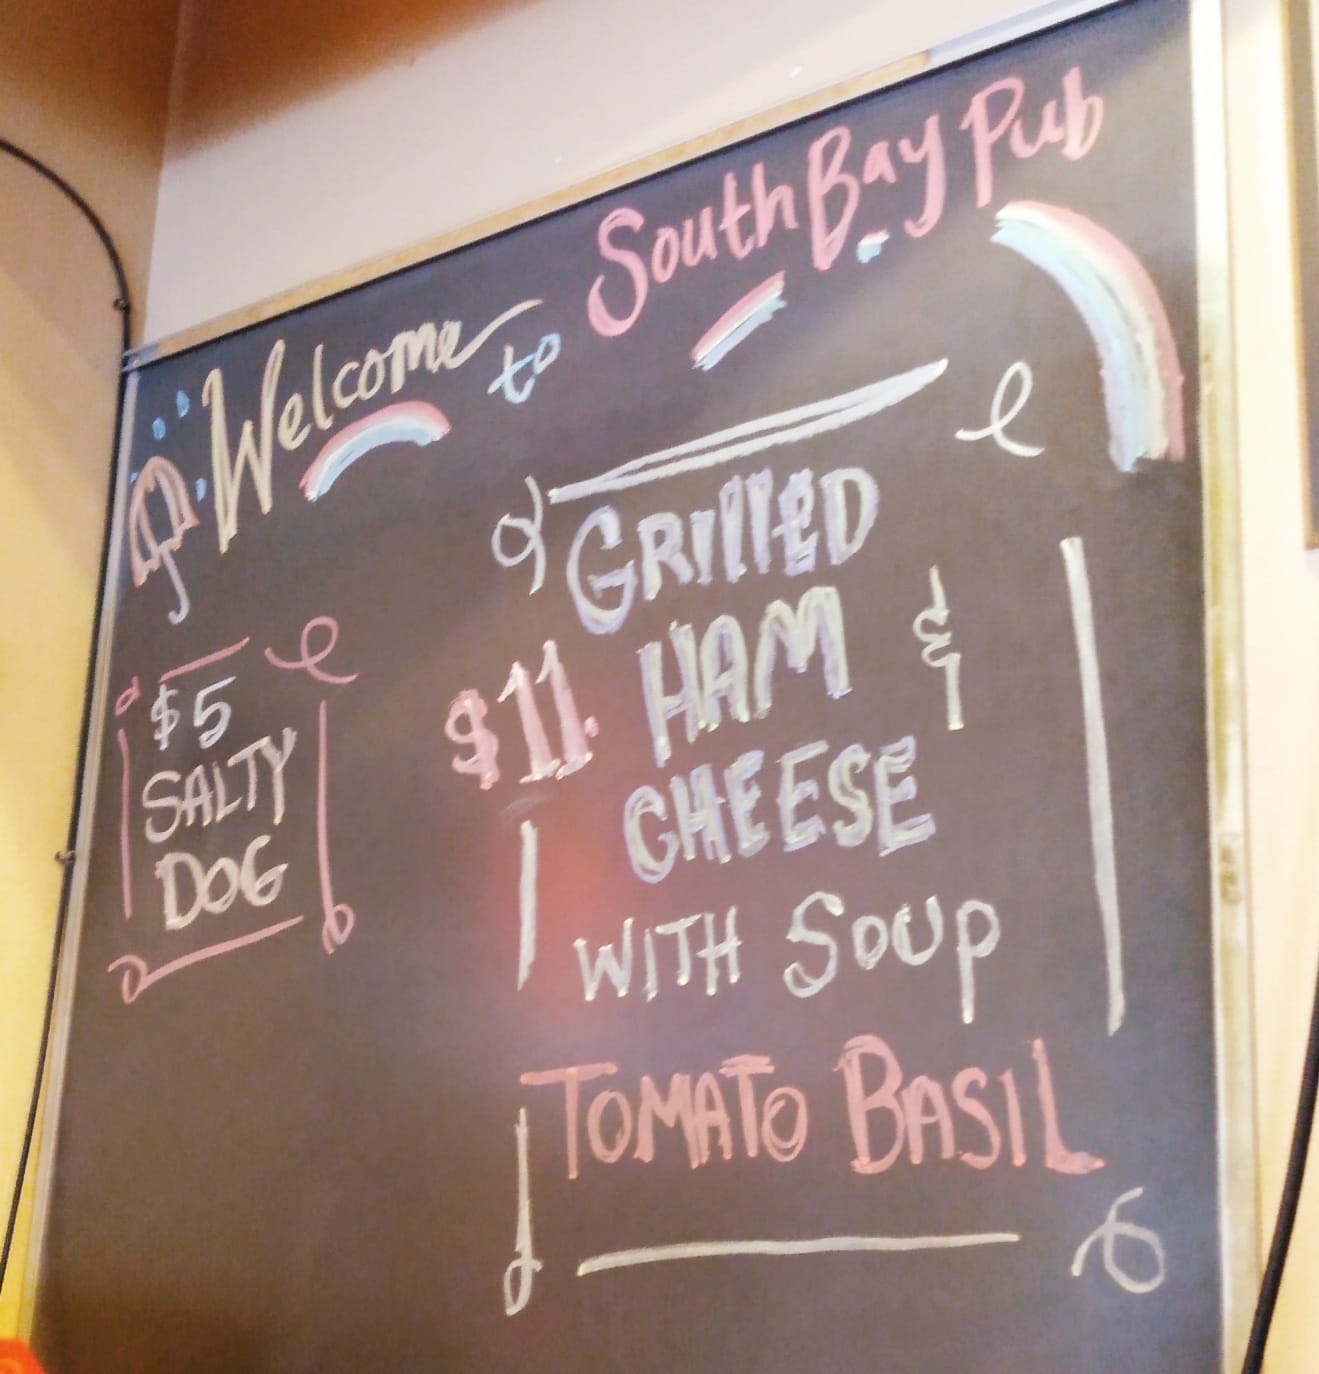 Welcome to South Bay Pub
$5
SALTY
DOG
GRILLED
$11. HAM &
CHEESE
WITH SOUP
TOMATO BASIL